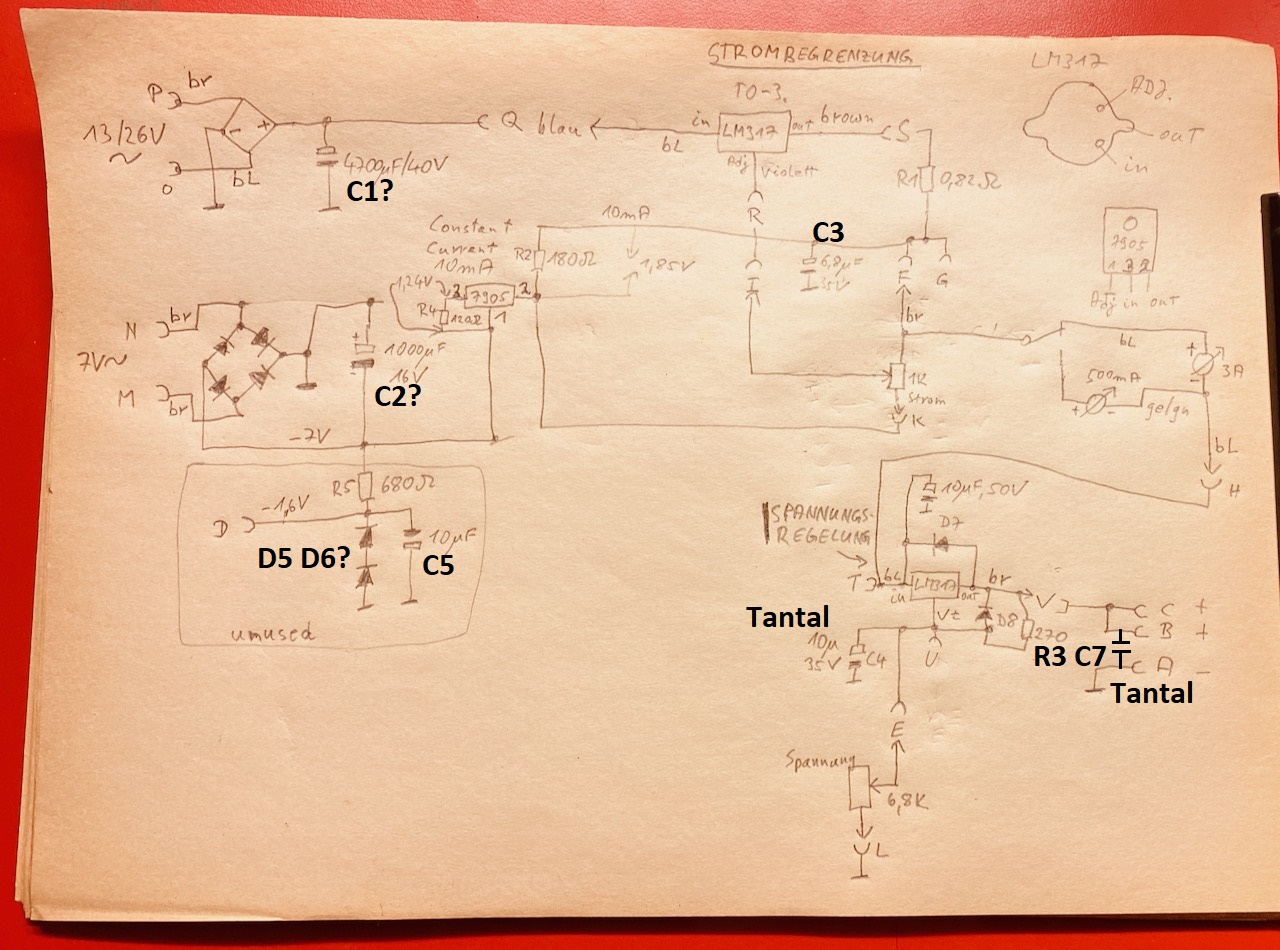 STROMBEGRENZUNG
LM317
ADJ.
out
in
TO-3.
in LM317 out
Adj
bL
brown
Violett
P br
13/26V
~
O bL
+
-
4700µF/40V
C1?
Q blau
S
R1 0,82Ω
R
10mA
C3
6,8µF
35V
Constant
Current
10mA
R2 180Ω
1,85V
1,24V
3 7905 2
1
R4 120Ω
I
F
G
br
7905
1 3 2
Adj in out
N br
7V~
M br
+
1000µF
16V
C2?
-7V
1K
Strom
K
bL
+
3A
-
500mA
+ -
ge/gn
bL
H
R5 680Ω
D -1,6V
D5 D6?
10µF
C5
unused
SPANNUNGS-
REGELUNG
10µF, 50V
D7
T bL
in LM317 out
br
V
C +
B +
A -
Tantal
10µ
35V
C4
Vt
D8
270
U
R3 C7
Tantal
E
Spannung
6,8K
L